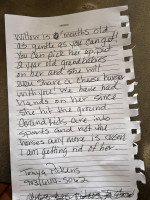 Willow is 6 months old
as gentle as you can get!
You can pick her up, put
2 year old grandbabies
on her and she will
even share a cheese burger
with you! We have had
hands on her since
she hit the ground.
Grandkids are into
sports and not the
horses any more is reason
I am getting rid of her
Tonya